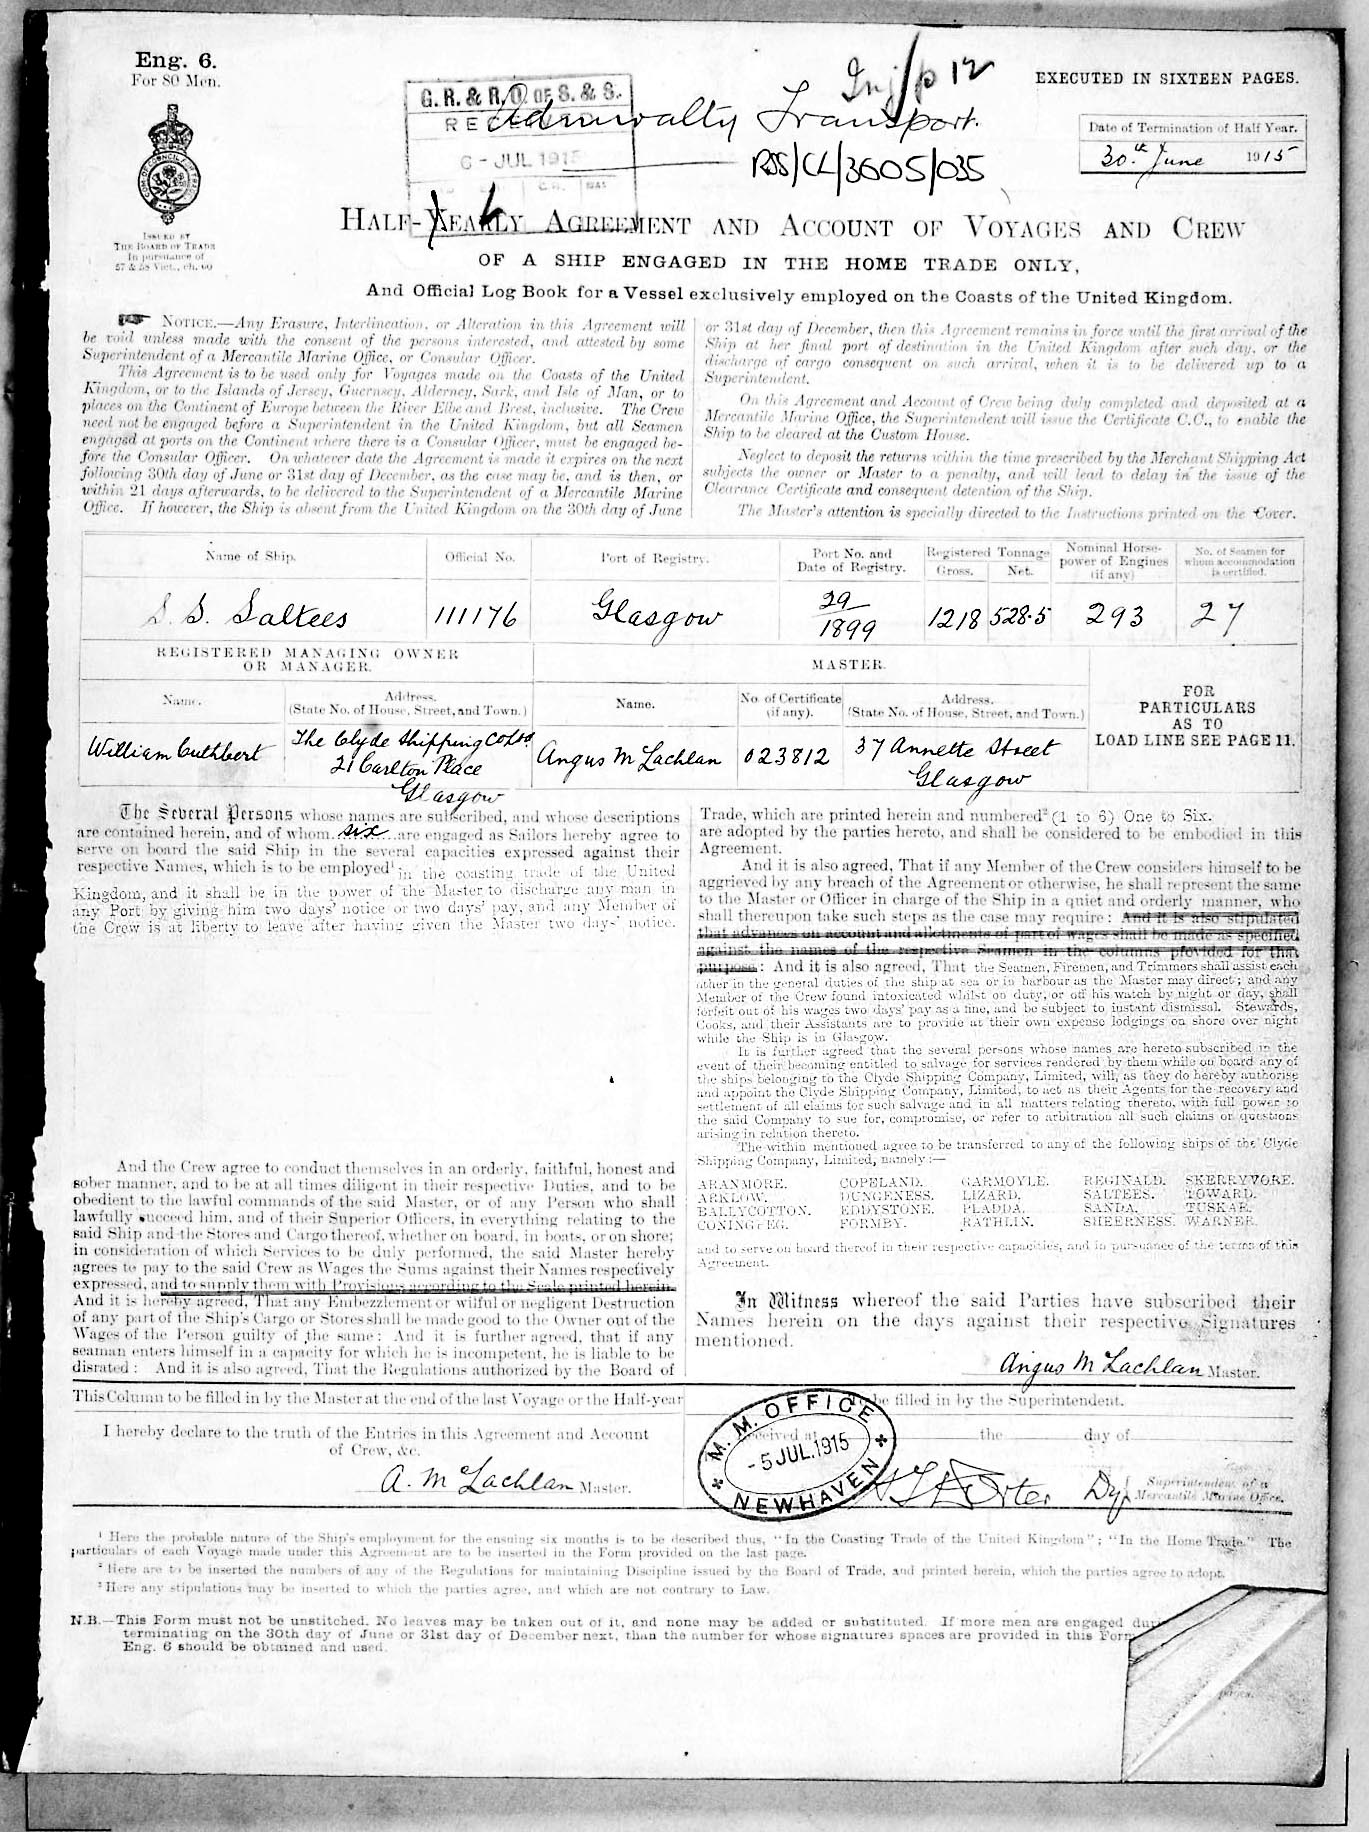 Eng. 6.
For 80 Men.
ISSUED BY
THE BOARD OF TRADE
In pursuance of
57 & 58 Vict., ch. 60
G. R. & R. O. OF S. & S.
6 - JUL 1915
Inj/p 12
Admiralty Transport.
RSS/CL/3605/035
EXECUTED IN SIXTEEN PAGES.
Date of Termination of Half Year.
30th June 1915
HALF-YEARLY AGREEMENT AND ACCOUNT OF VOYAGES AND CREW
OF A SHIP ENGAGED IN THE HOME TRADE ONLY,
And Official Log Book for a Vessel exclusively employed on the Coasts of the United Kingdom.
NOTICE.—Any Erasure, Interlineation, or Alteration in this Agreement will
be void unless made with the consent of the persons interested, and attested by some
Superintendent of a Mercantile Marine Office, or Consular Officer.
This Agreement is to be used only for Voyages made on the Coasts of the United
Kingdom, or to the Islands of Jersey, Guernsey, Alderney, Sark, and Isle of Man, or to
places on the Continent of Europe between the River Elbe and Brest, inclusive. The Crew
need not be engaged before a Superintendent in the United Kingdom, but all Seamen
engaged at ports on the Continent where there is a Consular Officer, must be engaged be-
fore the Consular Officer. On whatever date the Agreement is made it expires on the next
following 30th day of June or 31st day of December, as the case may be, and is then, or
within 21 days afterwards, to be delivered to the Superintendent of a Mercantile Marine
Office. If however, the Ship is absent from the United Kingdom on the 30th day of June
or 31st day of December, then this Agreement remains in force until the first arrival of the
Ship at her final port of destination in the United Kingdom after such day, or the
discharge of cargo consequent on such arrival, when it is to be delivered up to a
Superintendent.
On this Agreement and Account of Crew being duly completed and deposited at a
Mercantile Marine Office, the Superintendent will issue the Certificate C.C., to enable the
Ship to be cleared at the Custom House.
Neglect to deposit the returns within the time prescribed by the Merchant Shipping Act
subjects the owner or Master to a penalty, and will lead to delay in the issue of the
Clearance Certificate and consequent detention of the Ship.
The Master's attention is specially directed to the Instructions printed on the Cover.
Name of Ship. Official No. Port of Registry. Port No. and Date of Registry. Registered Tonnage Gross. Net. Nominal Horse-power of Engines (if any) No. of Seamen for whom accommodation is certified.
S. S. Saltees 111176 Glasgow 29/1899 1218 528.5 293 27
REGISTERED MANAGING OWNER
OR MANAGER.
MASTER.
Name. Address. (State No. of House, Street, and Town.) Name. No. of Certificate (if any). Address. (State No. of House, Street, and Town.)
FOR
PARTICULARS
AS TO
LOAD LINE SEE PAGE 11.
William Cuthbert
The Clyde Shipping Co Ltd
21 Carlton Place
Glasgow
Angus McLachlan
023812
37 Annette Street
Glasgow
The Several Persons whose names are subscribed, and whose descriptions
are contained herein, and of whom six are engaged as Sailors hereby agree to
serve on board the said Ship in the several capacities expressed against their
respective Names, which is to be employed¹ in the coasting trade of the United
Kingdom, and it shall be in the power of the Master to discharge any man in
any Port by giving him two days' notice or two days' pay, and any Member of
the Crew is at liberty to leave after having given the Master two days' notice.
And the Crew agree to conduct themselves in an orderly, faithful, honest and
sober manner, and to be at all times diligent in their respective Duties, and to be
obedient to the lawful commands of the said Master, or of any Person who shall
lawfully succeed him, and of their Superior Officers, in everything relating to the
said Ship and the Stores and Cargo thereof, whether on board, in boats, or on shore;
in consideration of which Services to be duly performed, the said Master hereby
agrees to pay to the said Crew as Wages the Sums against their Names respectively
expressed, and to supply them with Provisions according to the Scale printed herein.
And it is hereby agreed, That any Embezzlement or wilful or negligent Destruction
of any part of the Ship's Cargo or Stores shall be made good to the Owner out of the
Wages of the Person guilty of the same: And it is further agreed, that if any
seaman enters himself in a capacity for which he is incompetent, he is liable to be
disrated: And it is also agreed, That the Regulations authorized by the Board of
Trade, which are printed herein and numbered² (1 to 6) One to Six.
are adopted by the parties hereto, and shall be considered to be embodied in this
Agreement.
And it is also agreed, That if any Member of the Crew considers himself to be
aggrieved by any breach of the Agreement or otherwise, he shall represent the same
to the Master or Officer in charge of the Ship in a quiet and orderly manner, who
shall thereupon take such steps as the case may require: And it is also stipulated
that advances on account and allotments of part of wages shall be made as specified
against the names of the respective Seamen in the columns provided for that
purpose: And it is also agreed, That the Seamen, Firemen, and Trimmers shall assist each
other in the general duties of the ship at sea or in harbour as the Master may direct; and any
Member of the Crew found intoxicated whilst on duty, or off his watch by night or day, shall
forfeit out of his wages two days' pay as a fine, and be subject to instant dismissal. Stewards,
Cooks, and their Assistants are to provide at their own expense lodgings on shore over night
while the Ship is in Glasgow.
It is further agreed that the several persons whose names are hereto subscribed in the
event of their becoming entitled to salvage for services rendered by them while on board any of
the ships belonging to the Clyde Shipping Company, Limited, will, as they do hereby authorise
and appoint the Clyde Shipping Company, Limited, to act as their Agents for the recovery and
settlement of all claims for such salvage and in all matters relating thereto, with full power to
the said Company to sue for, compromise, or refer to arbitration all such claims or questions
arising in relation thereto.
The within mentioned agree to be transferred to any of the following ships of the Clyde
Shipping Company, Limited, namely:—
ARANMORE. COPELAND. GARMOYLE. REGINALD. SKERRYVORE.
ARKLOW. DUNGENESS. LIZARD. SALTEES. TOWARD.
BALLYCOTTON. EDDYSTONE. PLADDA. SANDA. TUSKAR.
CONINGBEG. FORMBY. RATHLIN. SHEERNESS. WARNER.
and to serve on board thereof in their respective capacities, and in pursuance of the terms of this
Agreement.
In Witness whereof the said Parties have subscribed their
Names herein on the days against their respective Signatures
mentioned.
Angus McLachlan Master.
This Column to be filled in by the Master at the end of the last Voyage or the Half-year
I hereby declare to the truth of the Entries in this Agreement and Account
of Crew, &c.
A. McLachlan Master.
be filled in by the Superintendent.
Received at the day of
M. M. OFFICE
- 5 JUL. 1915
NEWHAVEN
Dy/ Superintendent of a
Mercantile Marine Office.
¹ Here the probable nature of the Ship's employment for the ensuing six months is to be described thus, "In the Coasting Trade of the United Kingdom"; "In the Home Trade." The
particulars of each Voyage made under this Agreement are to be inserted in the Form provided on the last page.
² Here are to be inserted the numbers of any of the Regulations for maintaining Discipline issued by the Board of Trade, and printed herein, which the parties agree to adopt.
³ Here any stipulations may be inserted to which the parties agree, and which are not contrary to Law.
N.B.—This Form must not be unstitched. No leaves may be taken out of it, and none may be added or substituted. If more men are engaged
terminating on the 30th day of June or 31st day of December next, than the number for whose signatures spaces are provided in this Form
Eng. 6 should be obtained and used.
pages.